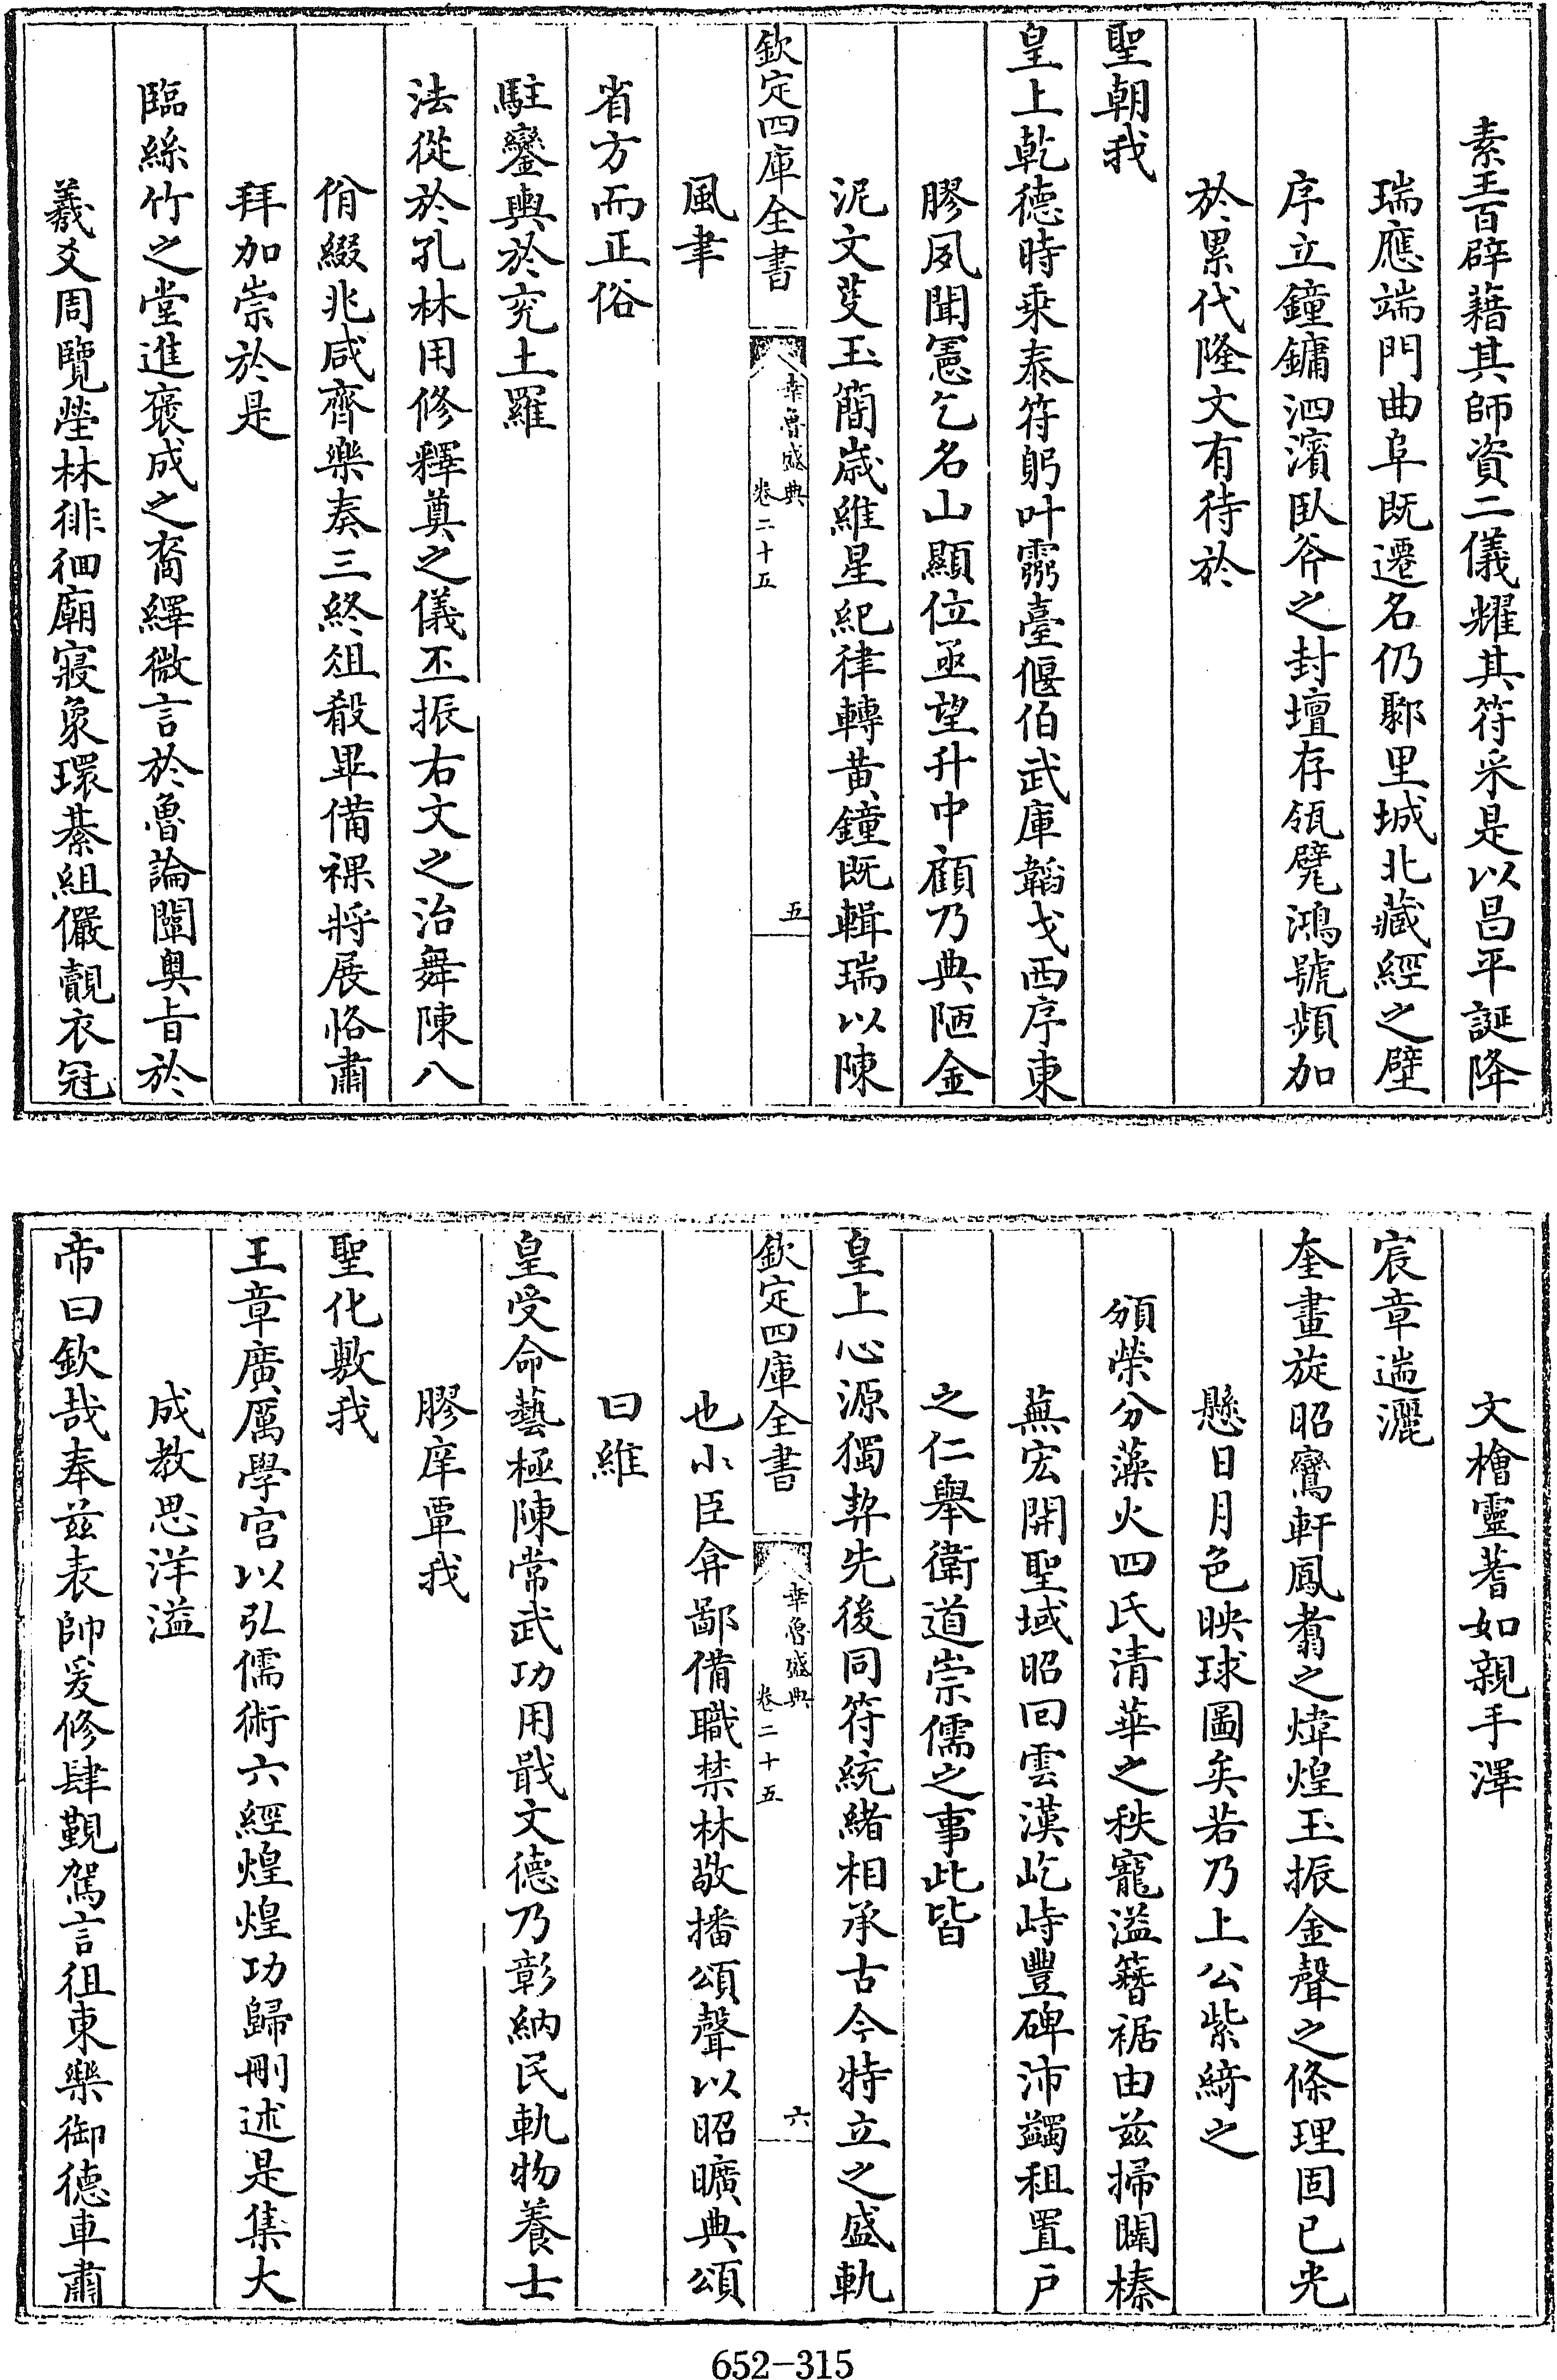 素王百辟藉其師資二儀耀其符采是以昌平誕降
瑞應端門曲阜既遷名仍鄹里城北藏經之壁
序立鐘鏞泗濱臥斧之封壇存瓴甓鴻號頻加
於累代隆文有待於
聖朝我
皇上乾德時乘泰符躬叶靈臺偃伯武庫韜戈西序東
膠夙聞憲乞名山顯位亟望升中顧乃典陋金
泥文芟玉簡歲維星紀律轉黃鐘既輯瑞以陳
欽定四庫全書
幸魯盛典
卷二十五
五
風聿
省方而正俗
駐鑾輿於兖土羅
法從於孔林用修釋奠之儀丕振右文之治舞陳八
佾綴兆咸齊樂奏三終俎殽畢備祼將展恪肅
拜加崇於是
臨絲竹之堂進褒成之裔繹微言於魯論闡奥旨於
羲爻周覽塋林徘徊廟寢象環綦組儼覿衣冠
文檜靈蓍如親手澤
宸章遄灑
奎畫旋昭鸞軒鳳翥之煒煌玉振金聲之條理固已光
懸日月色映球圖矣若乃上公紫綺之
頒榮分藻火四氏清華之秩寵溢簪裾由兹掃闢榛
蕪宏開聖域昭回雲漢屹峙豐碑沛蠲租置户
之仁舉衛道崇儒之事此皆
皇上心源獨契先後同符統緒相承古今特立之盛軌
欽定四庫全書
幸魯盛典
卷二十五
六
也小臣弇鄙備職禁林敬播頌聲以昭曠典頌
曰維
皇受命藝極陳常武功用戢文德乃彰納民軌物養士
膠庠覃我
聖化敷我
王章廣厲學宫以弘儒術六經煌煌功歸刪述是集大
成教思洋溢
帝曰欽哉奉兹表帥爰修肆覲駕言徂東樂御德車肅
652-315